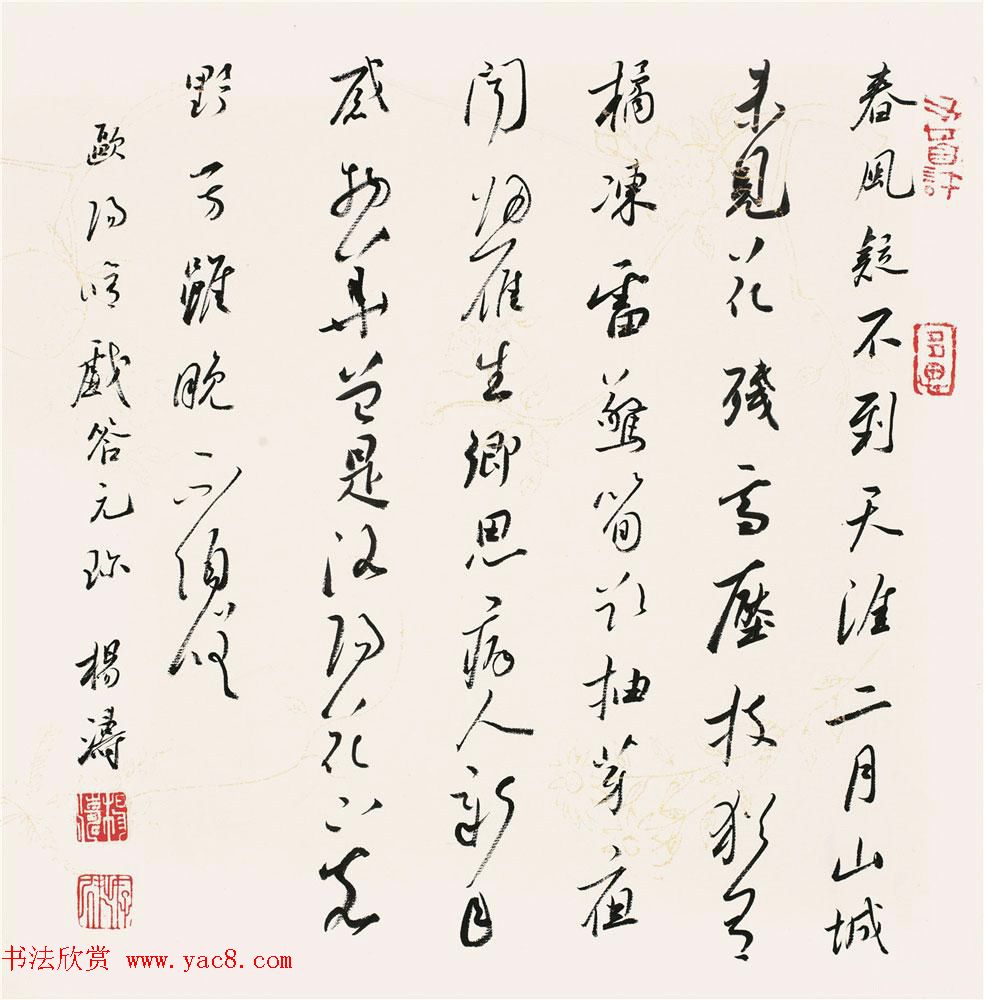 春風疑不到天涯二月山城
未見花殘雪壓枝猶有
橘凍雷驚筍欲抽芽夜
聞歸雁生鄉思病入新年
感物華曾是洛陽花下客
野芳雖晚不須嗟
歐陽修戲答元珍 楊濤
书法欣赏 www.yac8.com